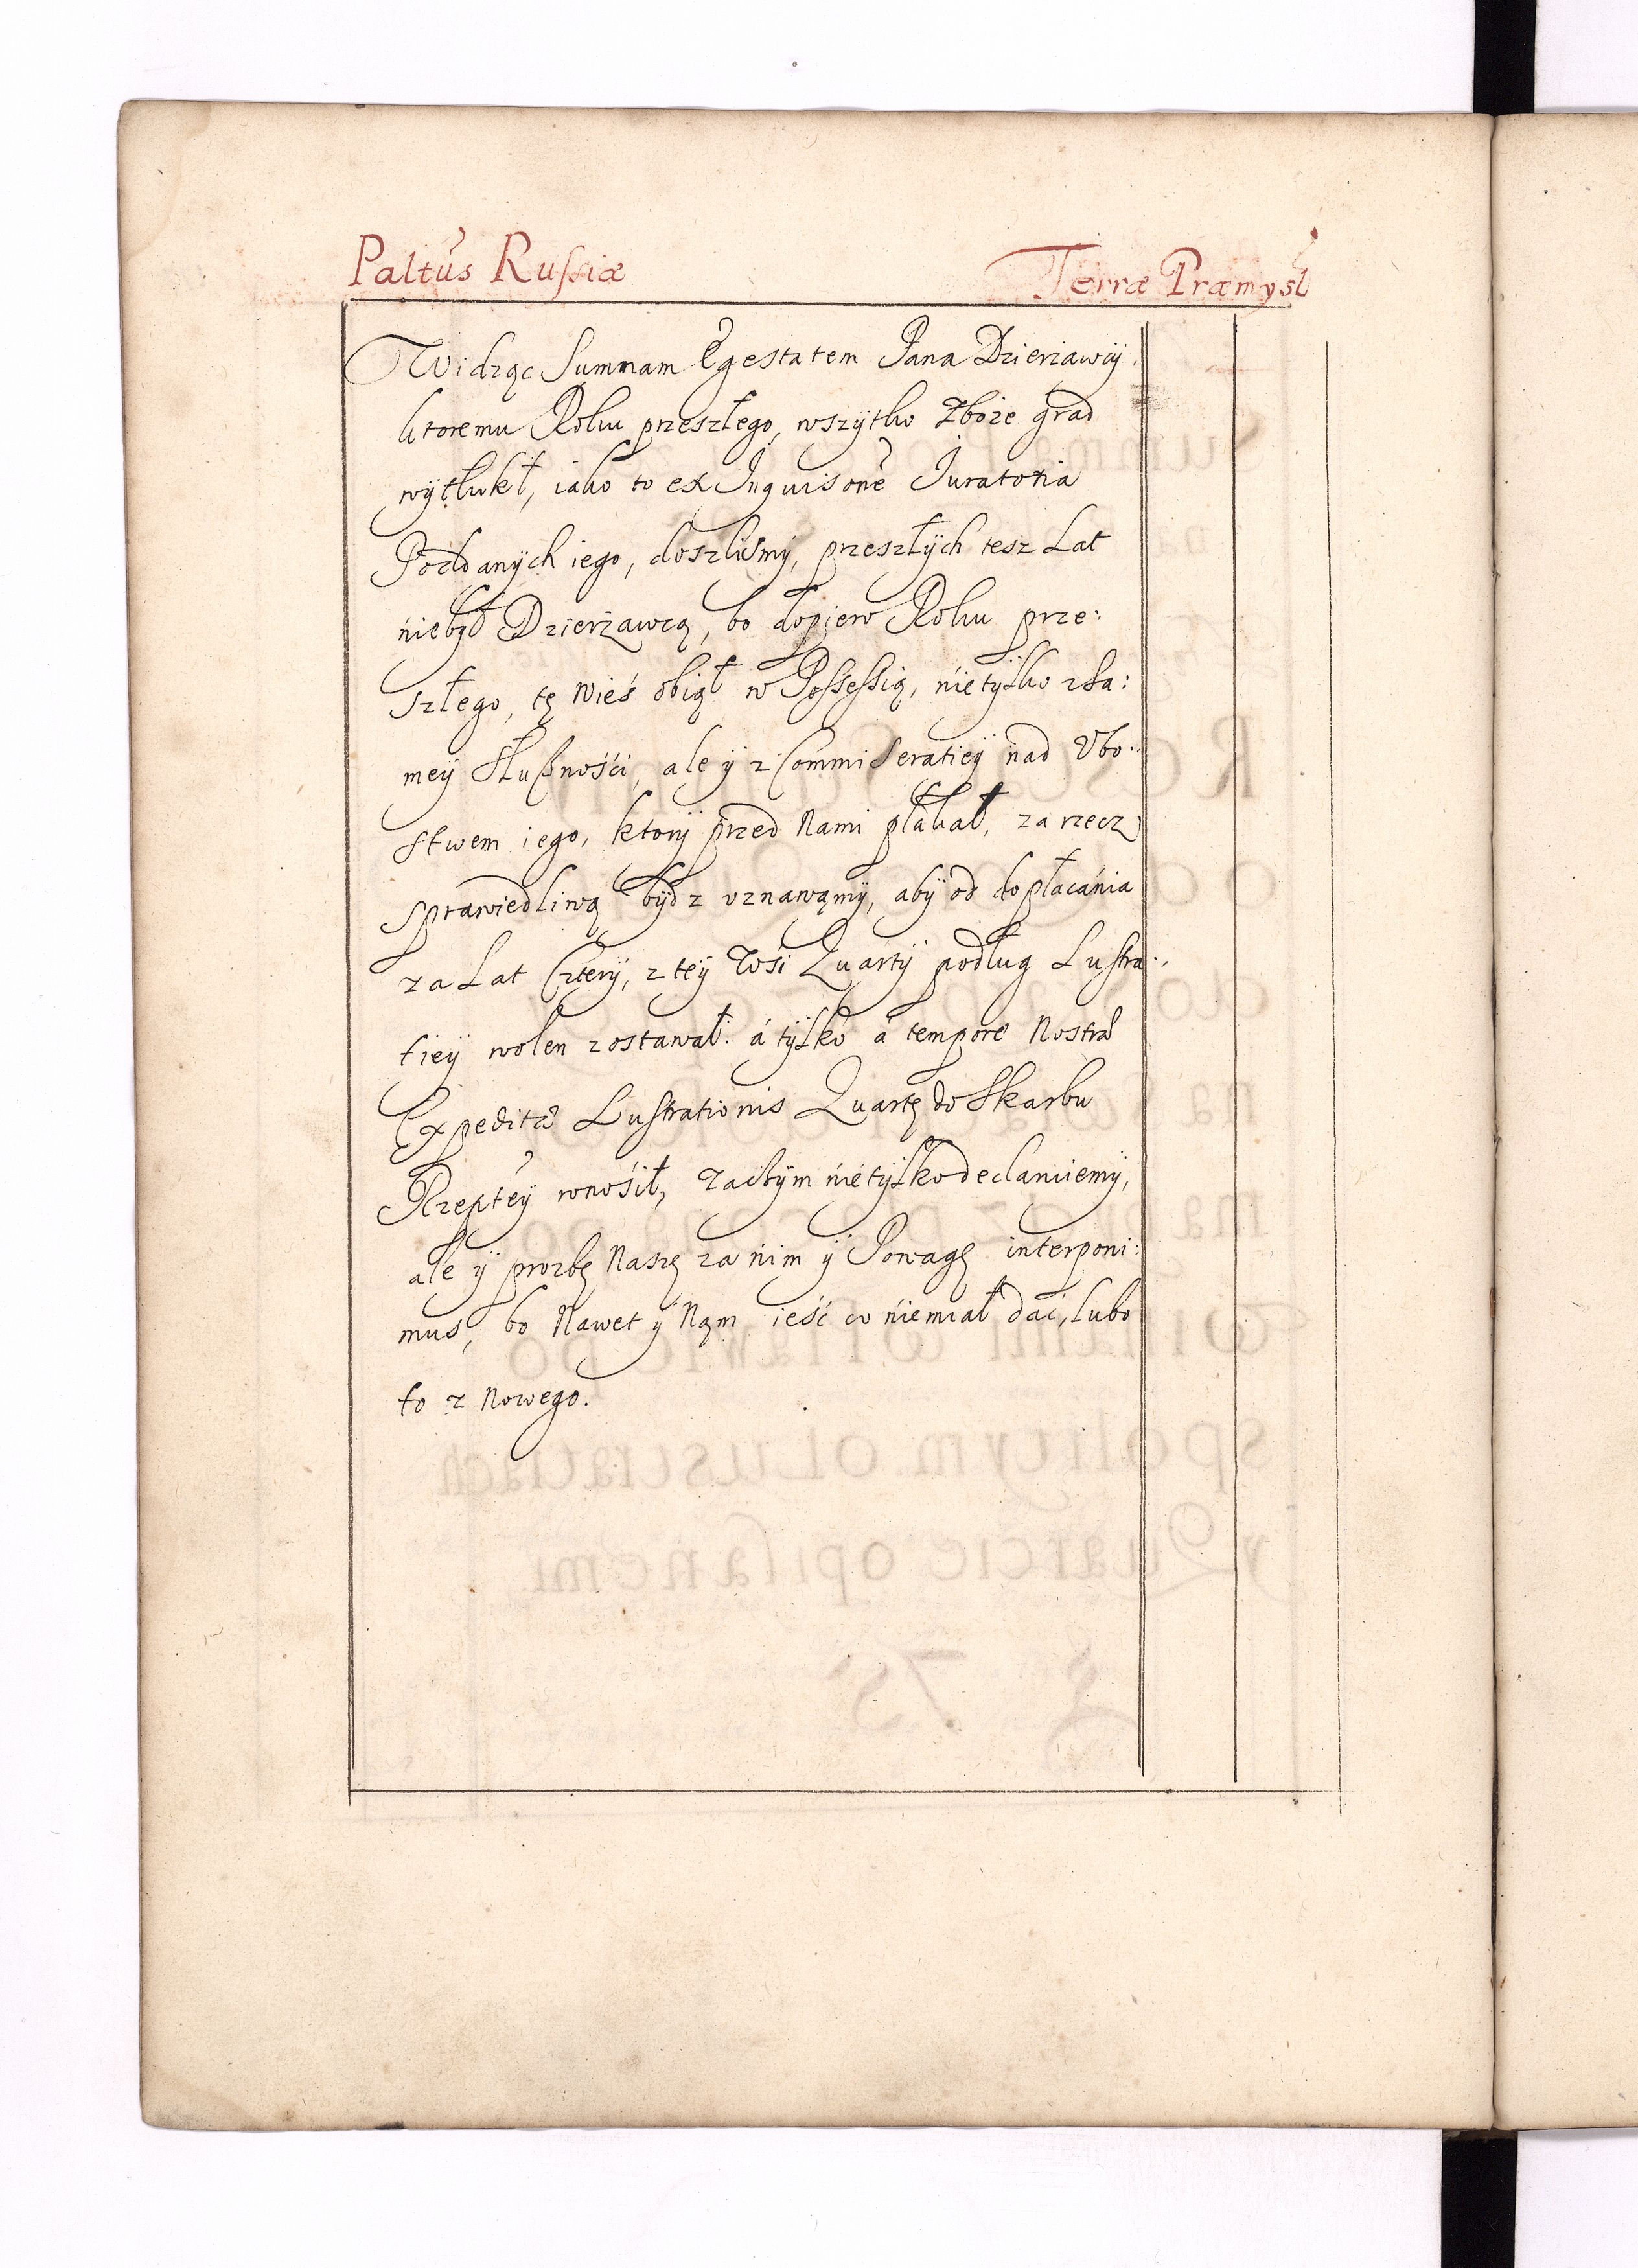 Paltus Russiæ Terræ Præmysl
Widząc Summam Egestatem Pana Dzierżawcÿ
ktoremu Roku przeszłego, wszÿtko zboże grad
wÿtłukł, iako to ex Inquisone Juratoria
Poddanÿch iego, doszliśmÿ, przeszłÿch tesz Lat
niebÿł Dzierżawcą, bo dopiero Roku prze:
szłego, tę wieś obiął w Possessią, nietÿlko z sa:
meÿ słußności, ale ÿ z Commiseratieÿ nad Vbo:
stwem iego, ktorÿ przed Nami płakał, za rzecz
sprawiedliwą bÿdz vznawamÿ, abÿ od dopłacánia
za Lat Czterÿ, z teÿ Wsi Quartÿ podług Lustra:
tieÿ wolen zostawał. á tÿlko á tempore Nostræ
Expeditæ Lustrationis Quartę do Skarbu
Rzepteÿ wnośił, zaczÿm nietÿlko declaruiemÿ,
ale ÿ prozbę Naszę za nim ÿ Powagę interponi:
mus, bo Nawet ÿ Nam ieść co niemiał dać, lubo
to z Nowego.